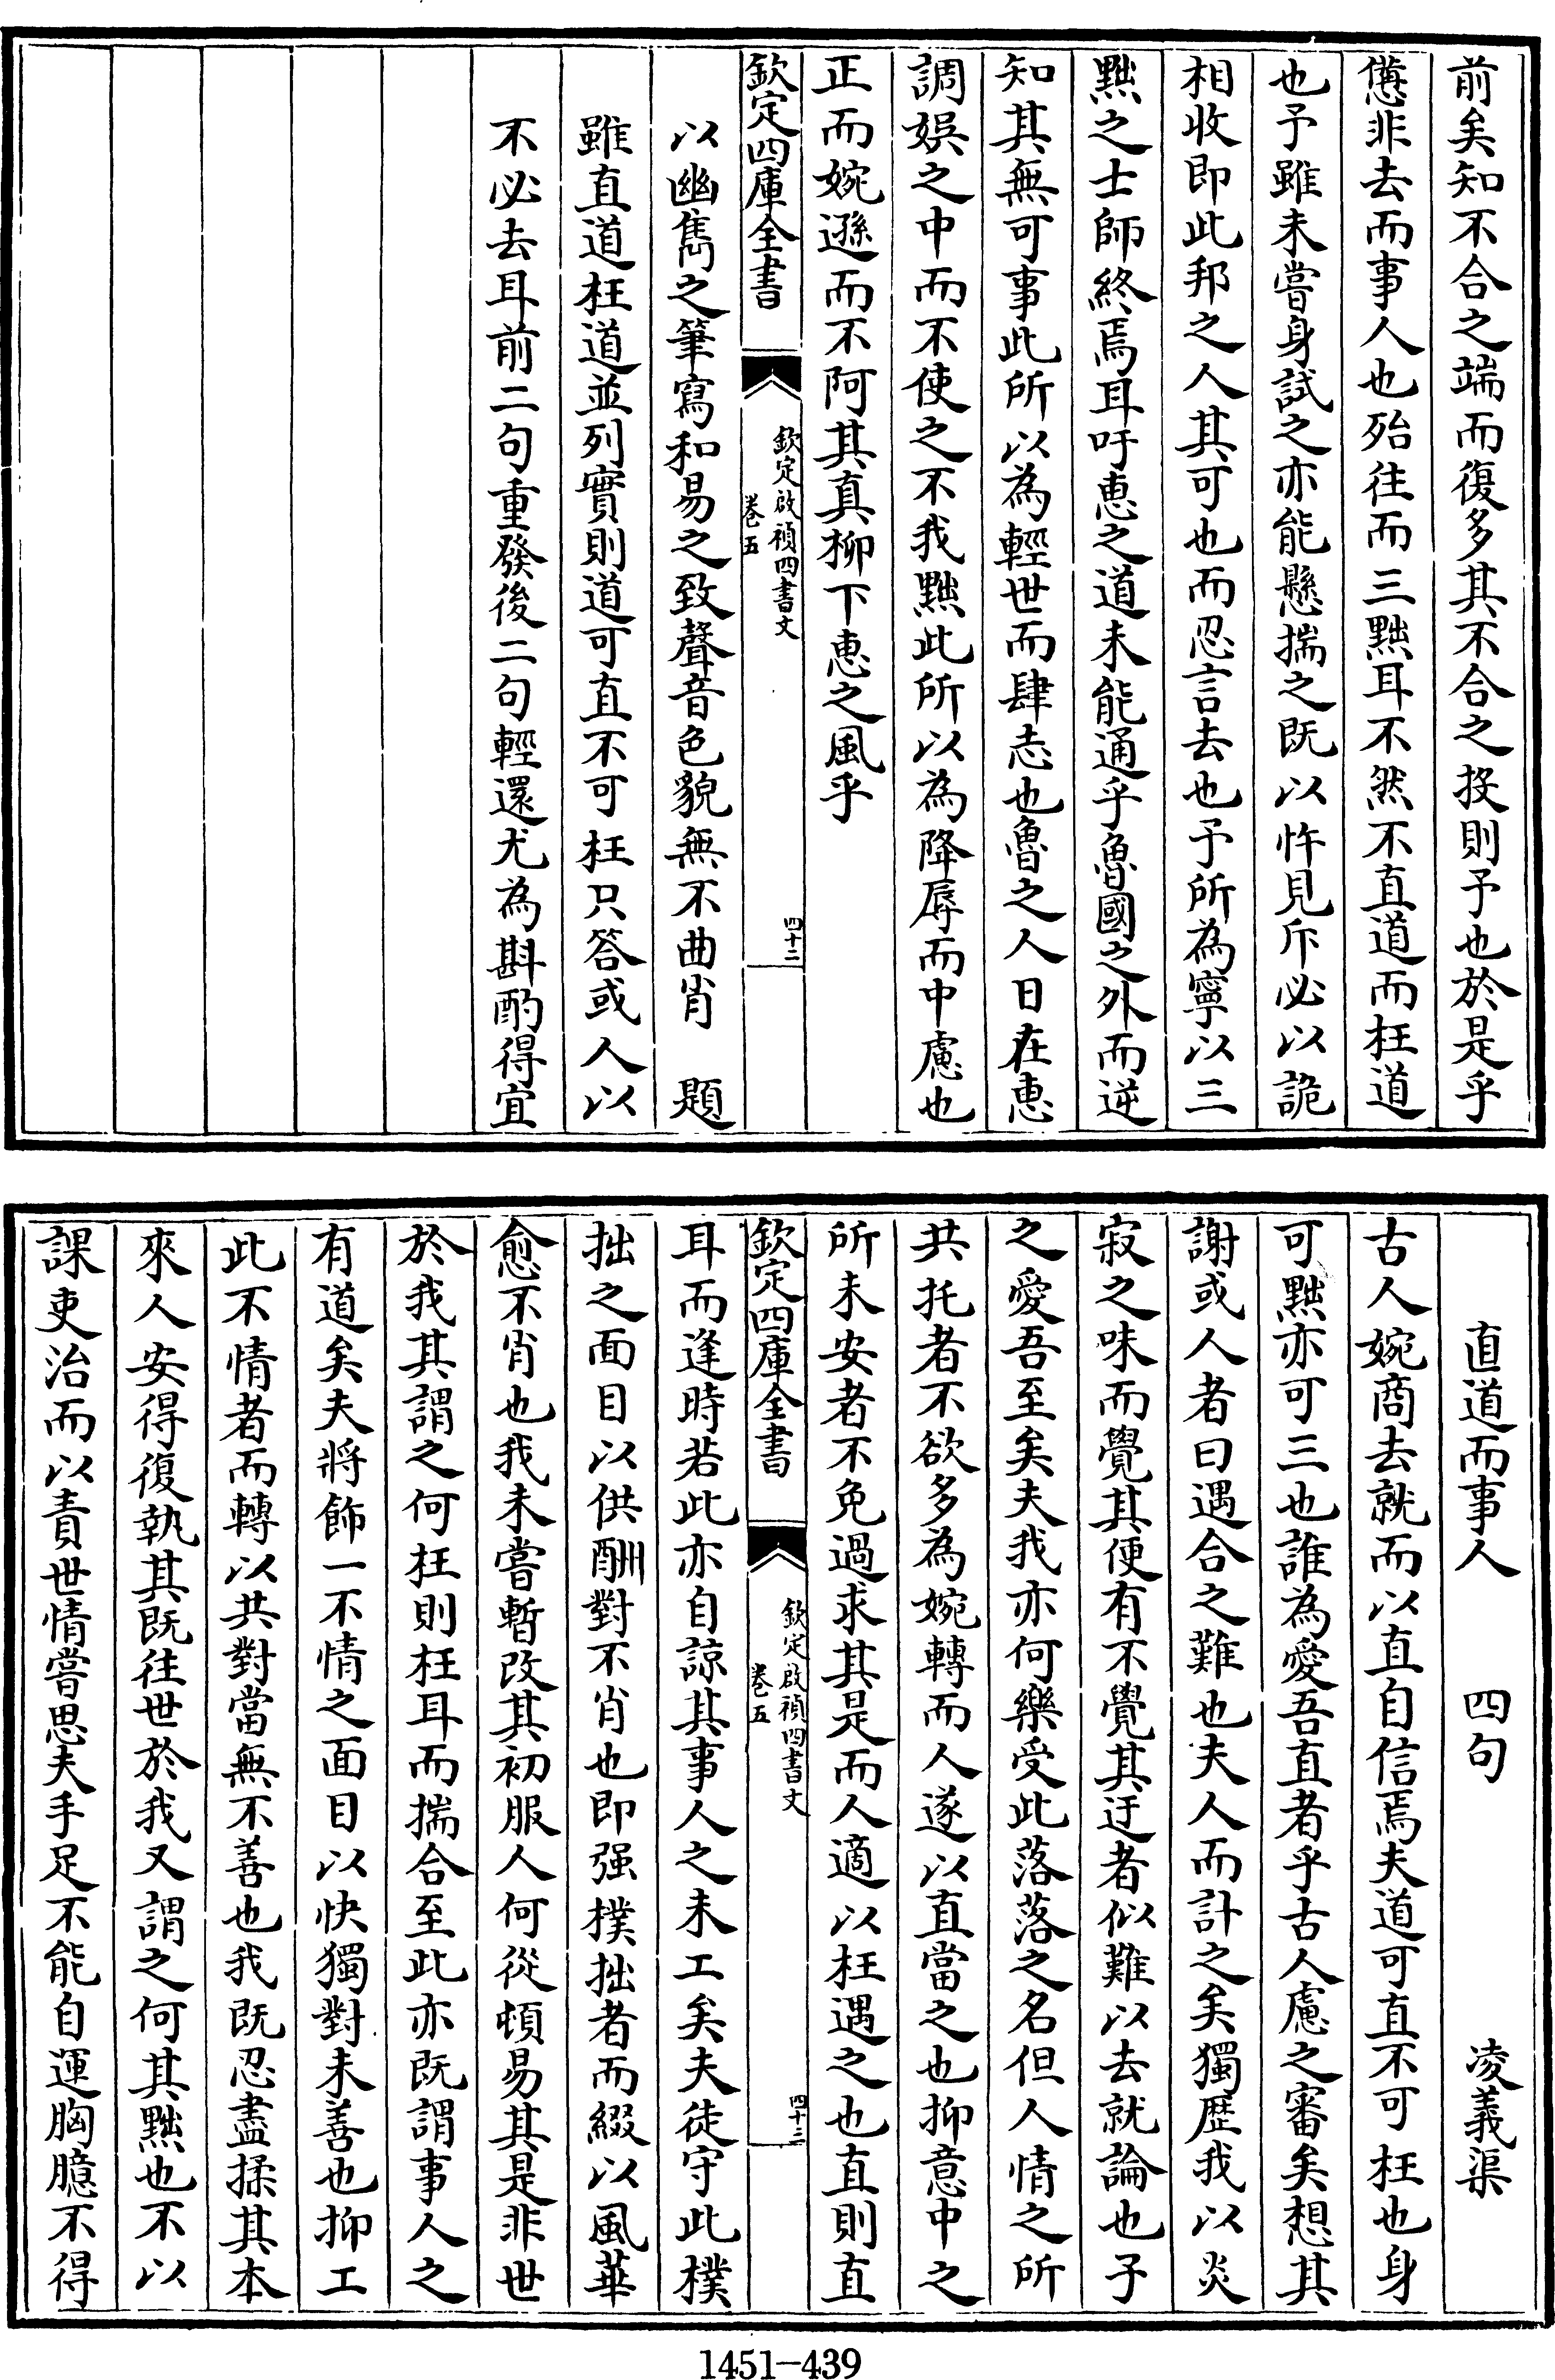 前矣知不合之端而復多其不合之投則予也於是乎
憊非去而事人也殆往而三黜耳不然不直道而枉道
也予雖未嘗身試之亦能懸揣之既以忤見斥必以詭
相收即此邦之人其可也而忍言去也予所為寧以三
黜之士師終焉耳吁惠之道未能通乎魯國之外而逆
知其無可事此所以為輕世而肆志也魯之人日在惠
調娛之中而不使之不我黜此所以為降辱而中慮也
正而婉遜而不阿其真柳下惠之風乎
欽定四庫全書
欽定啟禎四書文
卷五
四十二
以幽雋之筆寫和易之致聲音色貌無不曲肖　題
雖直道枉道並列實則道可直不可枉只答或人以
不必去耳前二句重發後二句輕還尤為斟酌得宜
直道而事人　四句　凌義渠
古人婉商去就而以直自信焉夫道可直不可枉也身
可黜亦可三也誰為愛吾直者乎古人慮之審矣想其
謝或人者曰遇合之難也夫人而計之矣獨歷我以炎
寂之味而覺其便有不覺其迂者似難以去就論也予
之愛吾至矣夫我亦何樂受此落落之名但人情之所
共托者不欲多為婉轉而人遂以直當之也抑意中之
所未安者不免過求其是而人適以枉遇之也直則直
欽定四庫全書
欽定啟禎四書文
卷五
四十三
耳而逢時若此亦自諒其事人之未工矣夫徒守此樸
拙之面目以供酬對不肖也即强撲拙者而綴以風華
愈不肖也我未嘗暫改其初服人何從頓易其是非世
於我其謂之何枉則枉耳而揣合至此亦既謂事人之
有道矣夫將飾一不情之面目以快獨對未善也抑工
此不情者而轉以共對當無不善也我既忍盡揉其本
來人安得復執其既往世於我又謂之何其黜也不以
課吏治而以責世情嘗思夫手足不能自運胸臆不得
1451-439